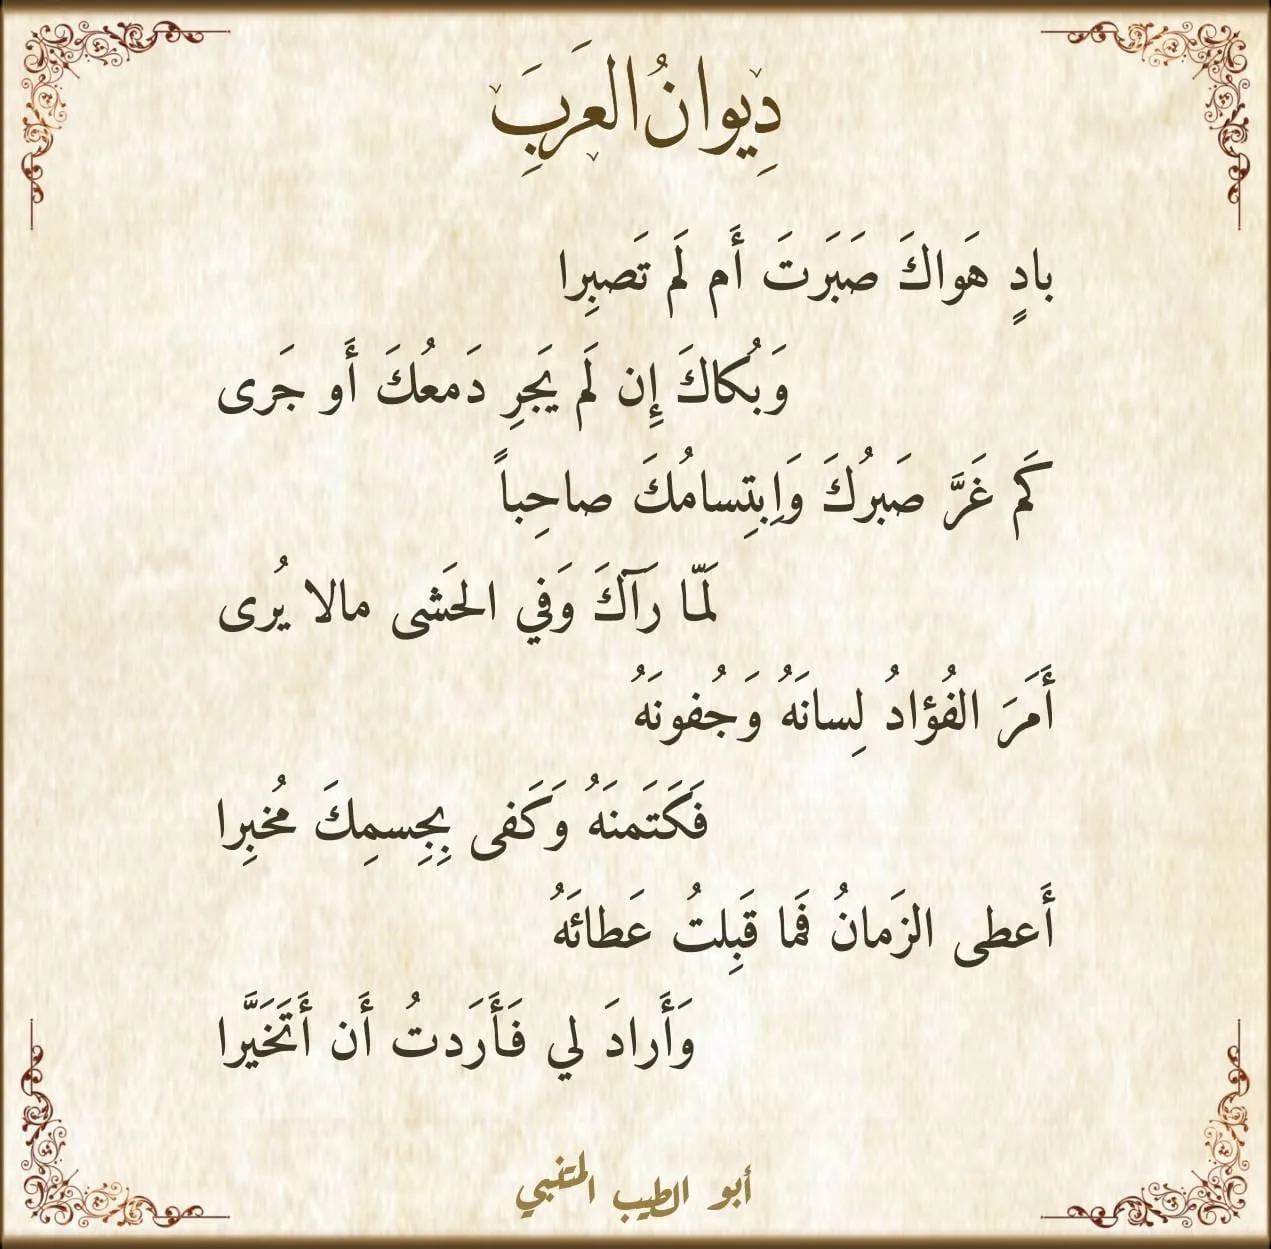 دِيوانُ العَرَبِ
بادٍ هَواكَ صَبَرتَ أَم لَم تَصبِرا
وَبُكاكَ إِن لَم يَجرِ دَمعُكَ أَو جَرى
كَم غَرَّ صَبرُكَ وَاِبتِسامُكَ صاحِباً
لَمّا رَآكَ وَفي الحَشى مالا يُرى
أَمَرَ الفُؤادُ لِسانَهُ وَجُفونَهُ
فَكَتَمنَهُ وَكَفى بِجِسمِكَ مُخبِرا
أَعطى الزَمانُ فَما قَبِلتُ عَطائَهُ
وَأَرادَ لي فَأَرَدتُ أَن أَتَخَيَّرا
أبو الطيب المتنبي